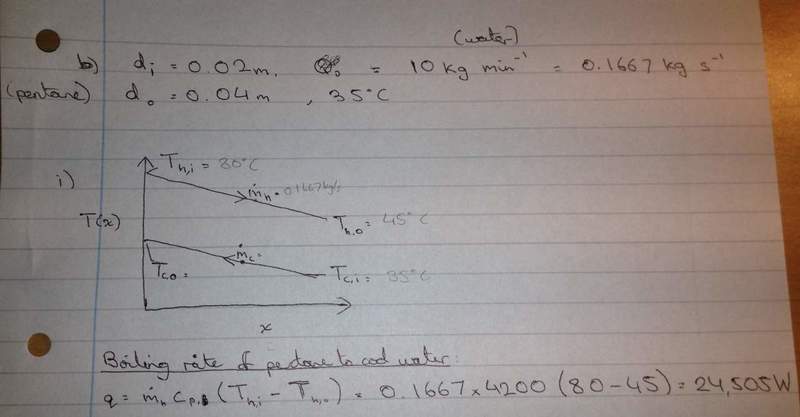 (water)
b) di = 0.02m, = 10 kg min⁻¹ = 0.1667 kg s⁻¹
(pentane) do = 0.04m, 35°C
i)
Th,i = 80°C
ṁh = 0.1667kg/s
T(x)
Th,o = 45°C
ṁc =
Tc,o =
Tc,i = 35°C
x
Boiling rate of pentane to cool water:
q = ṁh Cp,h (Th,i - Th,o) = 0.1667 × 4200 (80-45) = 24,505W